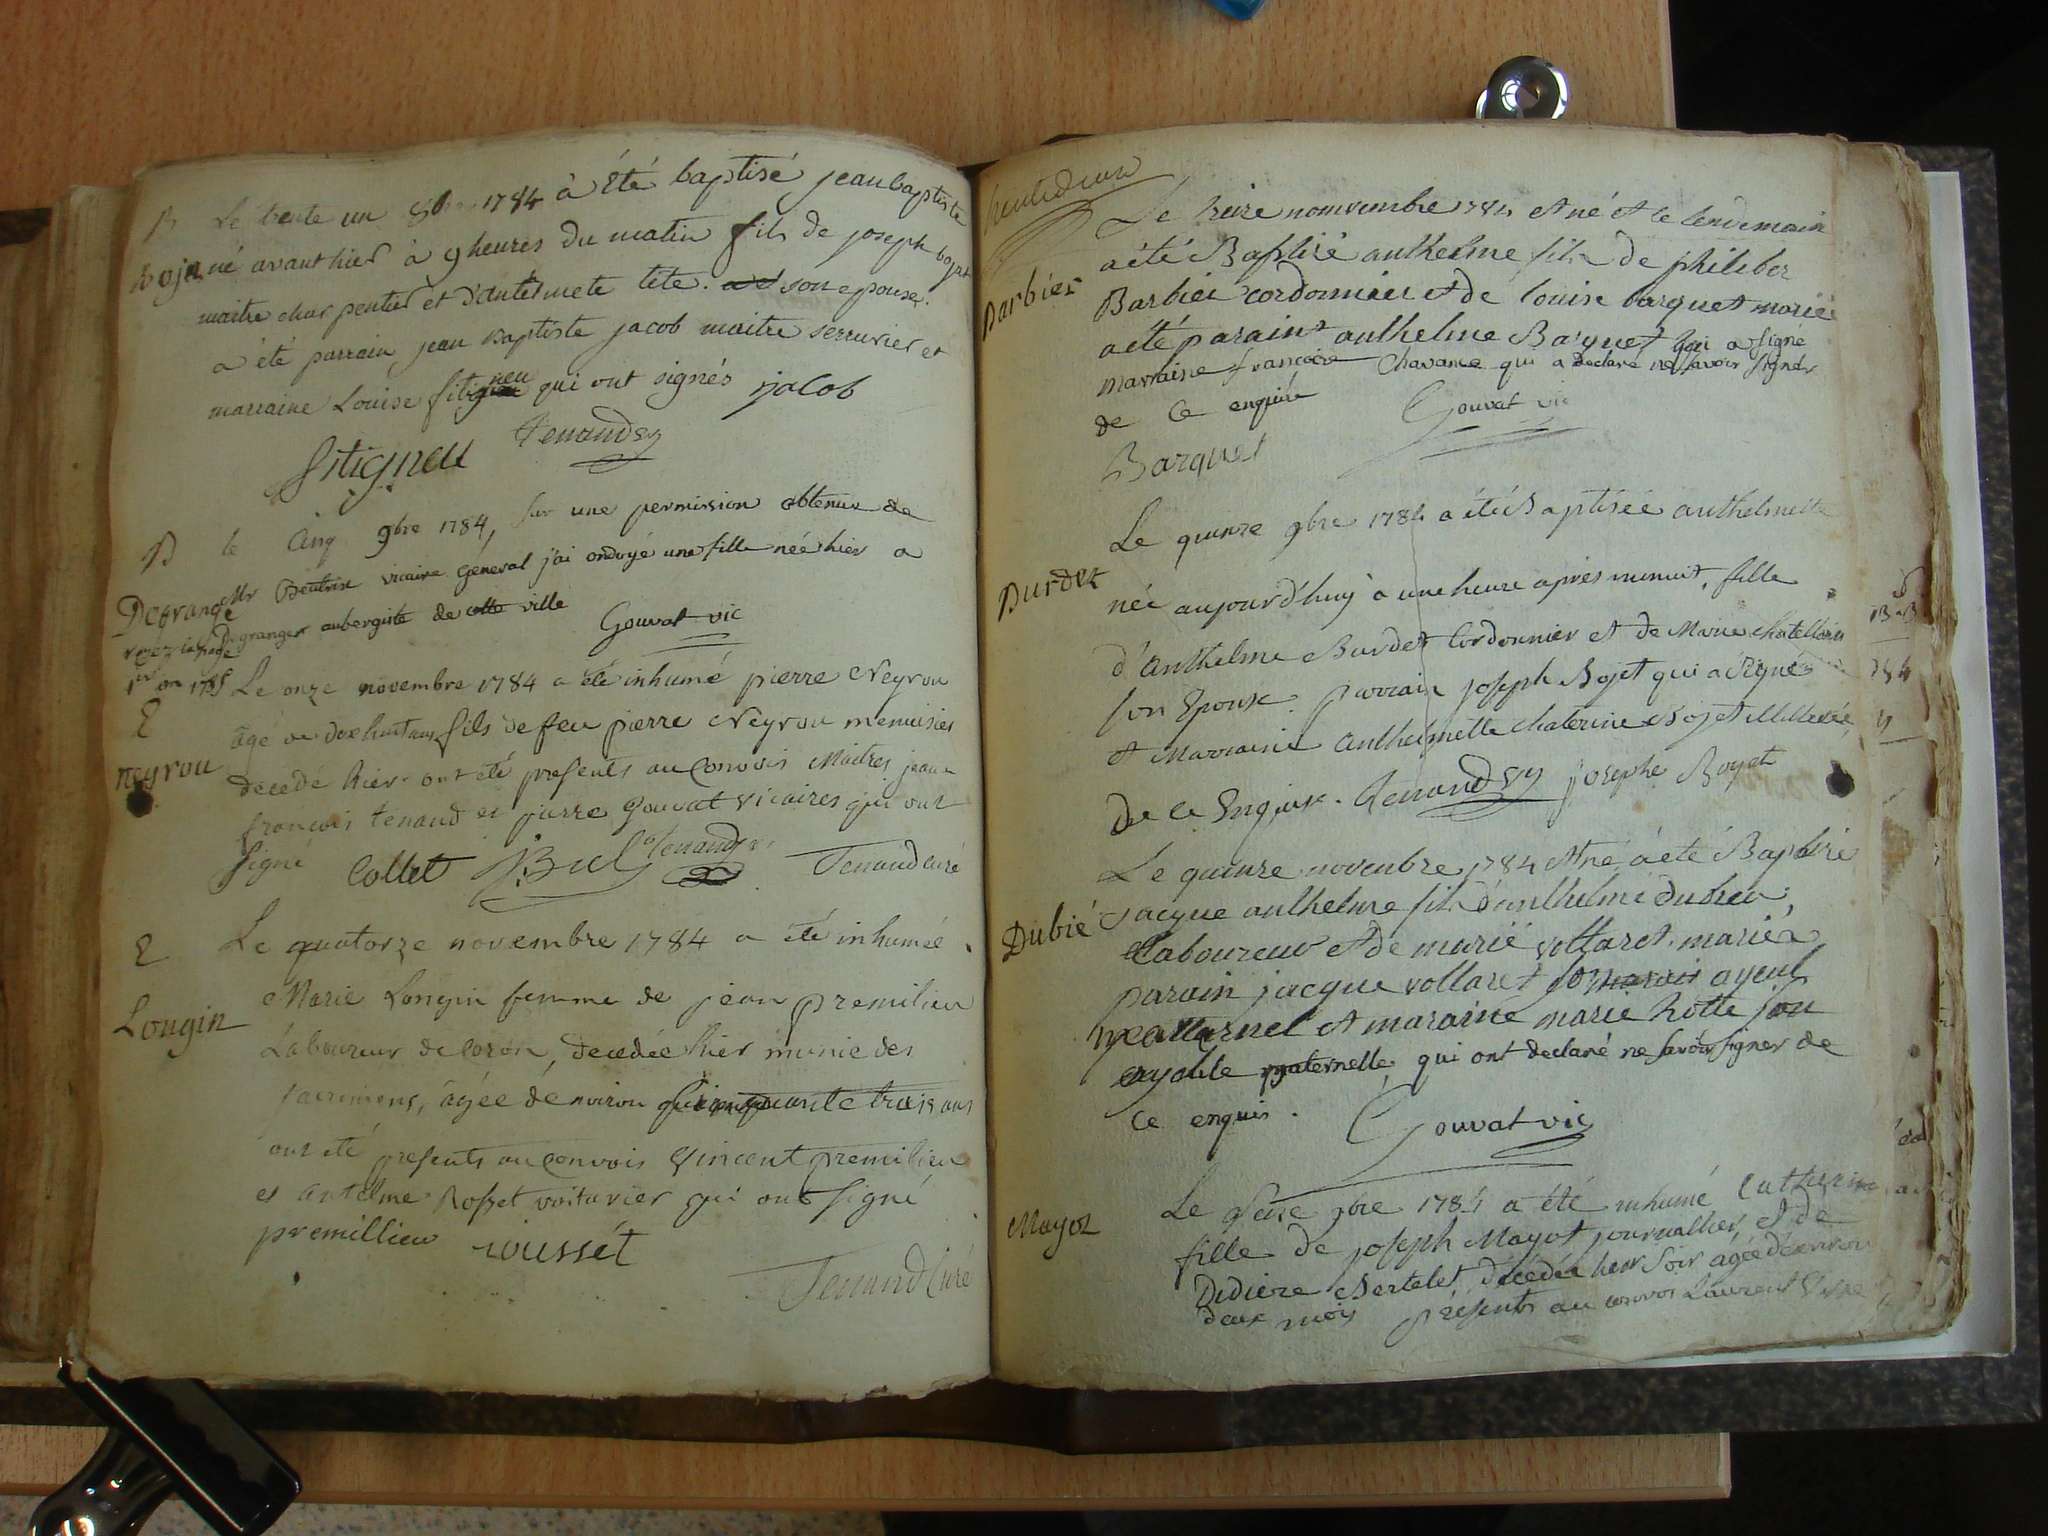 B Le trente un 8bre 1784 à été baptisé jean baptiste
Bojet né avant hier à 9 heures du matin fils de joseph bojet
maitre charpentier et d'antelmete tete. son epouse.
a été parrain jean Baptiste jacob maitre serrurier et
marraine Louise sitigneu qui ont signés jacob
Sitigneu Tenand sy
B le Cinq 9bre 1784, sur une permission obtenue de
Degrange Mr Beatrix vicaire General j'ai ondoyé une fille née hier a
Degranger aubergiste de cette ville Gouvat vic
voyez la page
1er en 1785
E Le onze novembre 1784 a été inhumé pierre Neyrou
neyrou âgé de dix huit ans fils de feu pierre Neyrou menuisier
décédé hier ont été presents au Convois Maitres jean
françois tenand et pierre Gouvat vicaires qui ont
signé Collet Tenand sy Tenand curé
E Le quatorze novembre 1784 a été inhumée
Longin Marie Longin femme de jean premilieu
Laboureur de , decedée hier munie des
sacremens, âgée d'environ cinquante trois ans
ont été presents au Convois Vincent premilieu
et antelme Rosset voiturier qui ont signé
premillieu rousset
Tenand Curé
Le treize nomvembre 1784 et né et le lendemain
Barbier a été Baptisé anthelme fils de philiber
Barbier cordonnier et de louise barquet mariés
a été parain anthelme Barquet qui a signé
marraine françoise Chavance qui a declaré ne savoir signer
de ce enquise Gouvat vic
Barquet
Le quinze 9bre 1784 a été Baptisée anthelmette
Burdet née aujourd'huy à une heure apres minuit, fille
d'anthelme Burdet Cordonnier et de Marie chatellain
son Epouse. parrain joseph Bojet qui a signé
et Marraine anthelmette chaterine Bojet illiterée
de ce Enquise. Tenand sy josephe Boyet
Le quinze novembre 1784 et né a été Baptisé
Dubié jacque anthelme fils d'anthelme dubieu
laboureur et de marie vollaret mariés
parain jacque vollaret son ayeul
maternel et maraine marie hotte son
ayeule maternelle qui ont declaré ne savoir signer de
ce enquis. Gouvat vic
Mayot Le seize 9bre 1784 a été inhumé Catherine
fille de joseph Mayot journallier, et de
Didiere Bertelet, décédée hier soir agée d'environ
deux mois présents au convoi Laurent